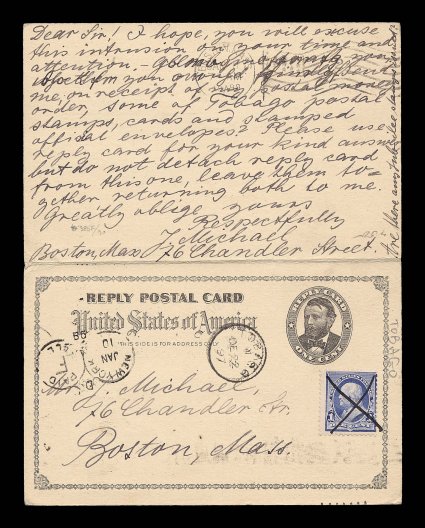 Dear Sir! I hope, you will excuse
this intrusion on your time and
attention.
you would
me, on receipt of my postal money
order some of Tobago postal
stamps, cards and stamped
official envelopes? Please use
reply card for your kind answer
but do not detach reply card
from this one, leave them to=
gether returning both to me.
Greatly oblige yours
Respectfully
J. Michael
Boston, Mass 76 Chandler Street.
Are there any
REPLY POSTAL CARD
United States of America
THIS SIDE IS FOR ADDRESS ONLY
REPLY CARD
ONE CENT
NEW YORK
JAN
10
TOBAGO
1
J. Michael,
76 Chandler Str.
Boston, Mass.